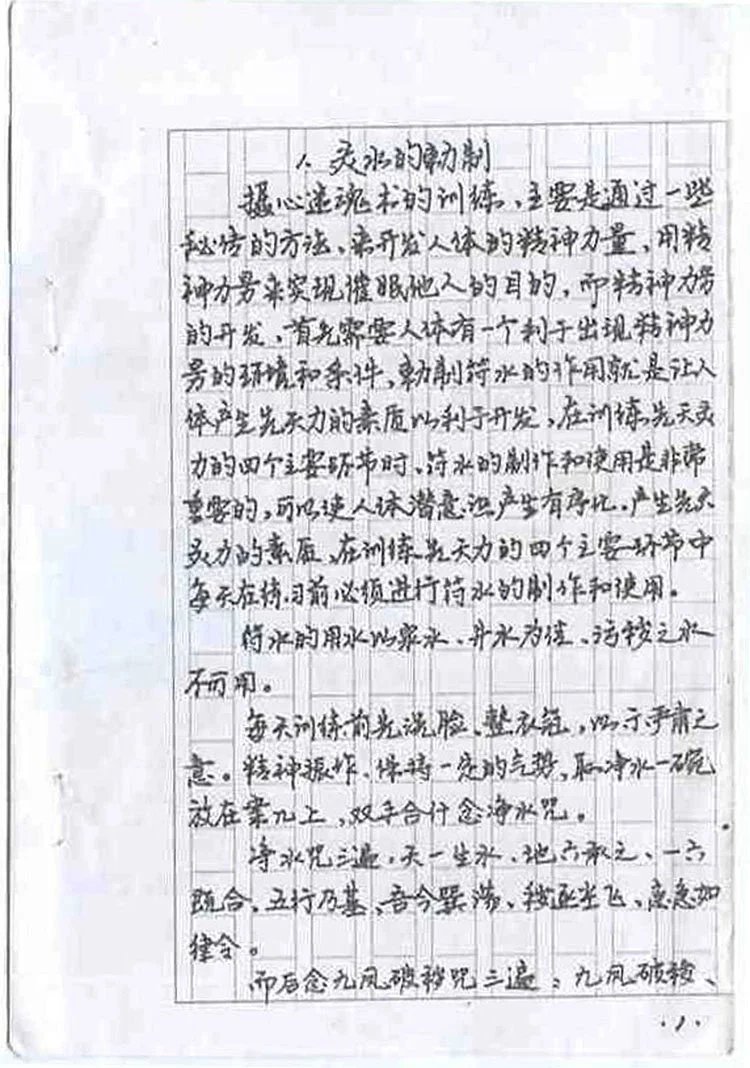 1、灵水的勅制
摄心迷魂术的训练、主要是通过一些
秘传的方法、来开发人体的精神力量、用精
神力量来实现催眠他人的目的，而精神力量
的开发、首先需要人体有一个利于出现精神力
量的环境和条件、勅制符水的作用就是让人
体产生先天力的素质以利于开发，在训练先天灵
力的四个主要环节时、符水的制作和使用是非常
重要的，可以使人体潜意识产生有序化、产生先天
灵力的素质、在训练先天力的四个主要环节中
每天在练习前必须进行符水的制作和使用。
符水的用水以泉水、井水为佳、污秽之水
不可用。
每天训练前先洗脸、整衣冠，以示严肃之
意。精神振作、保持一定的气势、取净水一碗
放在案几上，双手合什念净水咒。
净水咒三遍，天一生水、地六承之、一六
既合、五行乃基、吾今噀荡、秽逐尘飞、急急如
律令。
而后念九凤破秽咒三遍：九凤破秽、
.1.